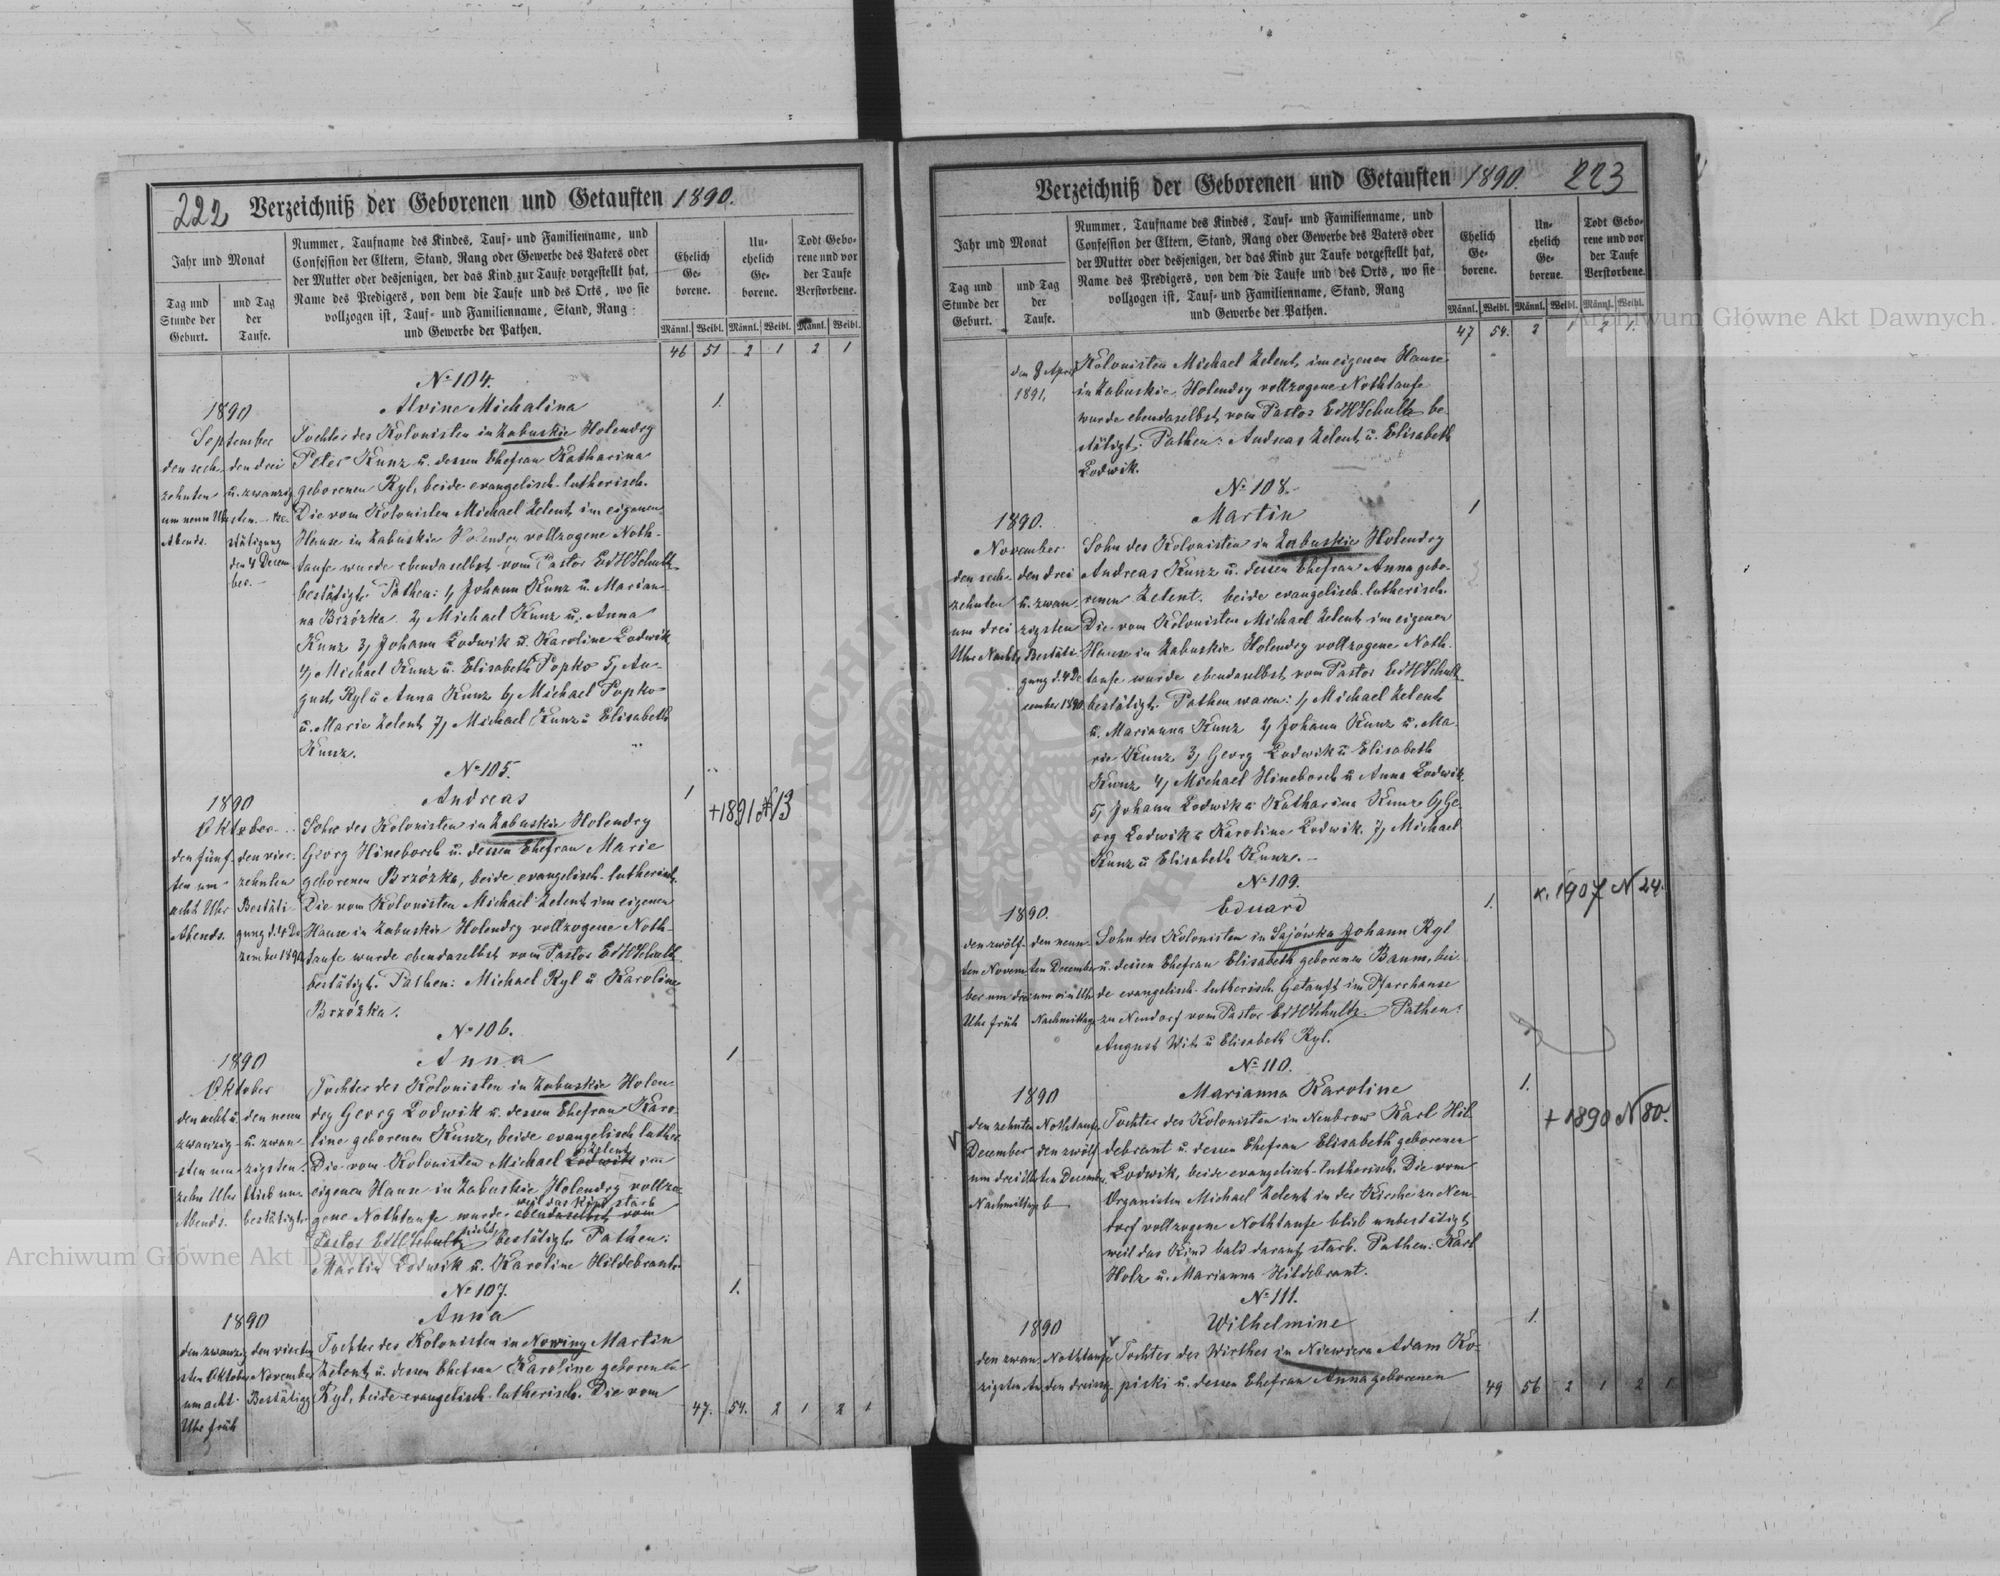 222 Verzeichniß der Geborenen und Getauften 1890.
Jahr und Monat
Tag und Stunde der Geburt.
und Tag der Taufe.
Nummer, Taufname des Kindes, Tauf- und Familienname, und
Confession der Eltern, Stand, Rang oder Gewerbe des Vaters oder
der Mutter oder desjenigen, der das Kind zur Taufe vorgestellt hat,
Name des Predigers, von dem die Taufe und des Orts, wo sie
vollzogen ist, Tauf- und Familienname, Stand, Rang
und Gewerbe der Pathen.
Ehelich Geborene.
Unehelich Geborene.
Todt Geborene und vor der Taufe Verstorbene.
Männl. Weibl. Männl. Weibl. Männl. Weibl.
46 51 2 1 2 1
No 104.
Alvine Michalina
1.
1890
September
den sechzehnten um neun Uhr Abends.
den drei u. zwanzigsten. Bestätigung den 4 December.
Tochter des Kolonisten in Zabuskie Holendry
Peter Kunz u. dessen Ehefrau Katharina
geborenen Ryl, beide evangelisch-lutherisch.
Die vom Kolonisten Michael Zelent im eigenen
Hause in Zabuskie Holendry vollzogene Noth-
taufe wurde ebendaselbst vom Pastor EdHSchultz
bestätigt. Pathen: 1, Johann Kunz u. Marian-
na Brzózka 2, Michael Kunz u. Anna
Kunz 3, Johann Lodwik u. Karoline Lodwik
4, Michael Kunz u. Elisabeth Popko 5, Au-
gust Ryl u Anna Kunz 6, Michael Popko
u. Marie Zelent 7, Michael Kunz u Elisabeth
Kunz.
No 105.
Andreas
1
+1891 N 13
1890
Oktober
den fünften um acht Uhr Abends.
den vierzehnten Bestätigung d. 4 Dezember 1890
Sohn des Kolonisten in Zabuskie Holendry
Georg Hineborch u. dessen Ehefrau Marie
geborenen Brzózka, beide evangelisch-lutherisch.
Die vom Kolonisten Michael Zelent im eigenen
Hause in Zabuskie Holendry vollzogene Noth-
taufe wurde ebendaselbst vom Pastor EdHSchultz
bestätigt. Pathen: Michael Ryl u Karoline
Brzózka.
No 106.
Anna
1
1890
Oktober
den acht u. zwanzigsten um zehn Uhr Abends.
den neun u. zwanzigsten. blieb unbestätigt
Tochter des Kolonisten in Zabuskie Holen-
dry Georg Lodwik u. dessen Ehefrau Karo-
line geborenen Kunz, beide evangelisch luther.
Zelent
Die vom Kolonisten Michael Lodwik im
eigenen Hause in Zabuskie Holendry vollzo-
weil das Kind starb
gene Nothtaufe wurde ebendaselbst vom
nicht
Pastor EdHSchultz bestätigt. Pathen:
Martin Lodwik u. Karoline Hildebrant.
No 107.
1.
Anna
1890
den zwanzigsten Oktober um acht Uhr früh
den vierten November Bestätigg
Tochter des Kolonisten in Nowiny Martin
Zelent u. dessen Ehefrau Karoline geborenen
Ryl, beide evangelisch-lutherisch. Die vom
47. 54. 2 1 2 1
Verzeichniß der Geborenen und Getauften 1890. 223
Jahr und Monat
Tag und Stunde der Geburt.
und Tag der Taufe.
Nummer, Taufname des Kindes, Tauf- und Familienname, und
Confession der Eltern, Stand, Rang oder Gewerbe des Vaters oder
der Mutter oder desjenigen, der das Kind zur Taufe vorgestellt hat,
Name des Predigers, von dem die Taufe und des Orts, wo sie
vollzogen ist, Tauf- und Familienname, Stand, Rang
und Gewerbe der Pathen.
Ehelich Geborene.
Unehelich Geborene.
Todt Geborene und vor der Taufe Verstorbene.
Männl. Weibl. Männl. Weibl. Männl. Weibl.
47 54. 2 1 2 1.
den 8 April 1891,
Kolonisten Michael Zelent, im eigenen Hause
in Zabuskie Holendry vollzogene Nothtaufe
wurde ebendaselbst vom Pastor EdHSchultz be-
stätigt. Pathen: Andreas Zelent u. Elisabeth
Lodwik.
No 108.
Martin
1
1890.
November
den sechzehnten um drei Uhr Nachts
den drei u. zwanzigsten Bestätigung d. 4 December 1890.
Sohn des Kolonisten in Zabuskie Holendry
Andreas Kunz u. dessen Ehefrau Anna gebo-
renen Zelent. beide evangelisch-lutherisch.
Die vom Kolonisten Michael Zelent im eigenen
Hause in Zabuskie Holendry vollzogene Noth-
taufe wurde ebendaselbst vom Pastor EdHSchultz
bestätigt. Pathen waren: 1, Michael Zelent
u. Marianna Kunz 2, Johann Kunz u. Ma-
rie Kunz 3, Georg Lodwik u Elisabeth
Kunz 4, Michael Hineborch u Anna Lodwik
5, Johann Lodwik u Katharina Kunz 6, Ge-
org Lodwik u Karoline Lodwik. 7, Michael
Kunz u Elisabeth Kunz. -
No 109.
Eduard
1.
1907 N 24.
1890.
den zwölften November um drei Uhr früh
den neunten December um ein Uhr Nachmittags
Sohn des Kolonisten in Sajówka Johann Ryl
u. dessen Ehefrau Elisabeth geborenen Baum, bei-
de evangelisch-lutherisch. Getauft im Pfarrhause
zu Neudorf vom Pastor EdHSchultz. Pathen:
August Witt u Elisabeth Ryl.
No 110.
Marianna Karoline
1.
+ 1890 N 80.
1890
den zehnten December um drei Uhr Nachmittags
Nothtaufe den zwölften December.
Tochter des Kolonisten in Neubrow Karl Hil-
debrant u. dessen Ehefrau Elisabeth geborenen
Lodwik, beide evangelisch-lutherisch. Die vom
Organisten Michael Zelent in der Kirche zu Neu-
dorf vollzogene Nothtaufe blieb unbestätigt,
weil das Kind bald darauf starb. Pathen: Karl
Holz u. Marianna Hildebrant.
No 111.
Wilhelmine
1.
1890
Tochter des Wirthes in Niewiera Adam Ko-
piski u. dessen Ehefrau Anna geborenen
49 56 2 1 2 1
Archiwum Główne Akt Dawnych
Archiwum Główne Akt Dawnych